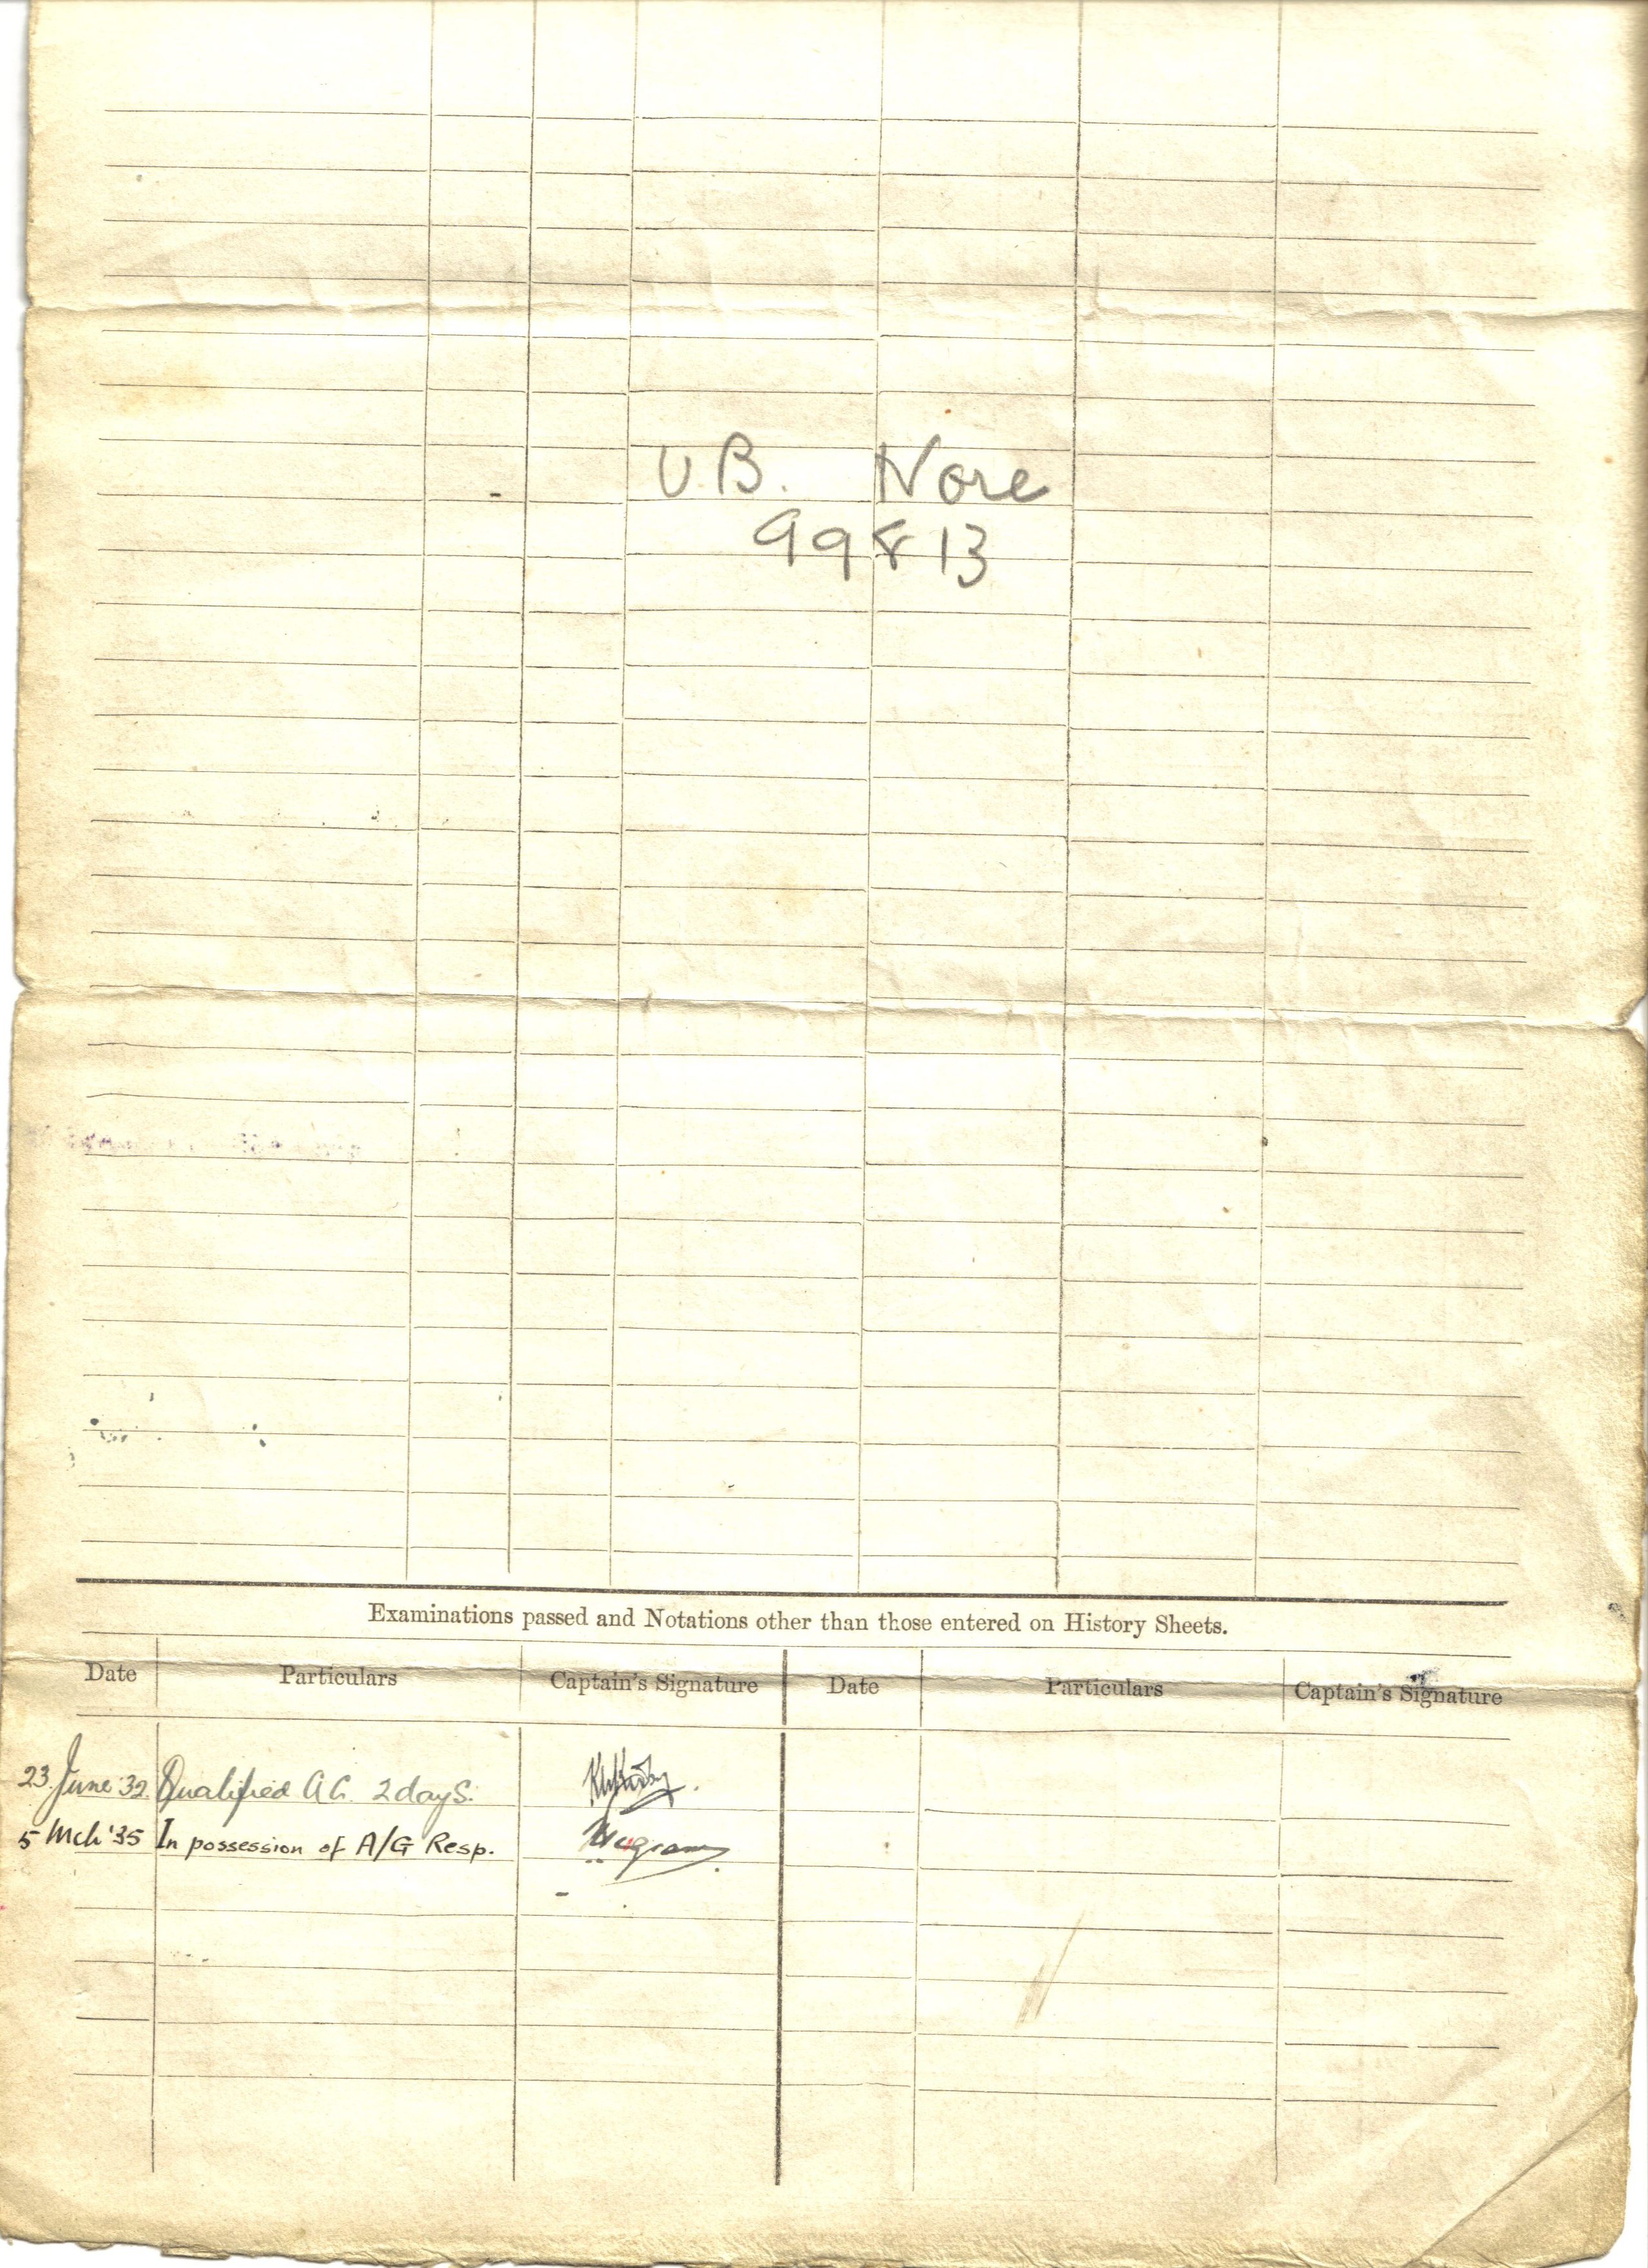 U.B. Nore
99813
Examinations passed and Notations other than those entered on History Sheets.
Date Particulars Captain's Signature Date Particulars Captain's Signature
23 June '32. Qualified A.G. 2 days.
5 Mch '35 In possession of A/G Resp.